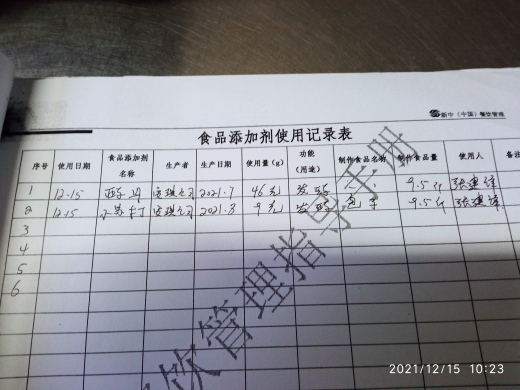 新中（中国）餐饮管理
食品添加剂使用记录表
序号 使用日期 食品添加剂名称 生产者 生产日期 使用量（g） 功能（用途） 制作食品名称 制作食品量 使用人 备注
1 12.15 2021.7 46克 发酵 9.5斤 张建锋
2 12.15 小苏打 2021.8 9克 发酵 包子 9.5斤 张建锋
3
4
5
6
饮管理指导手册
2021/12/15 10:23